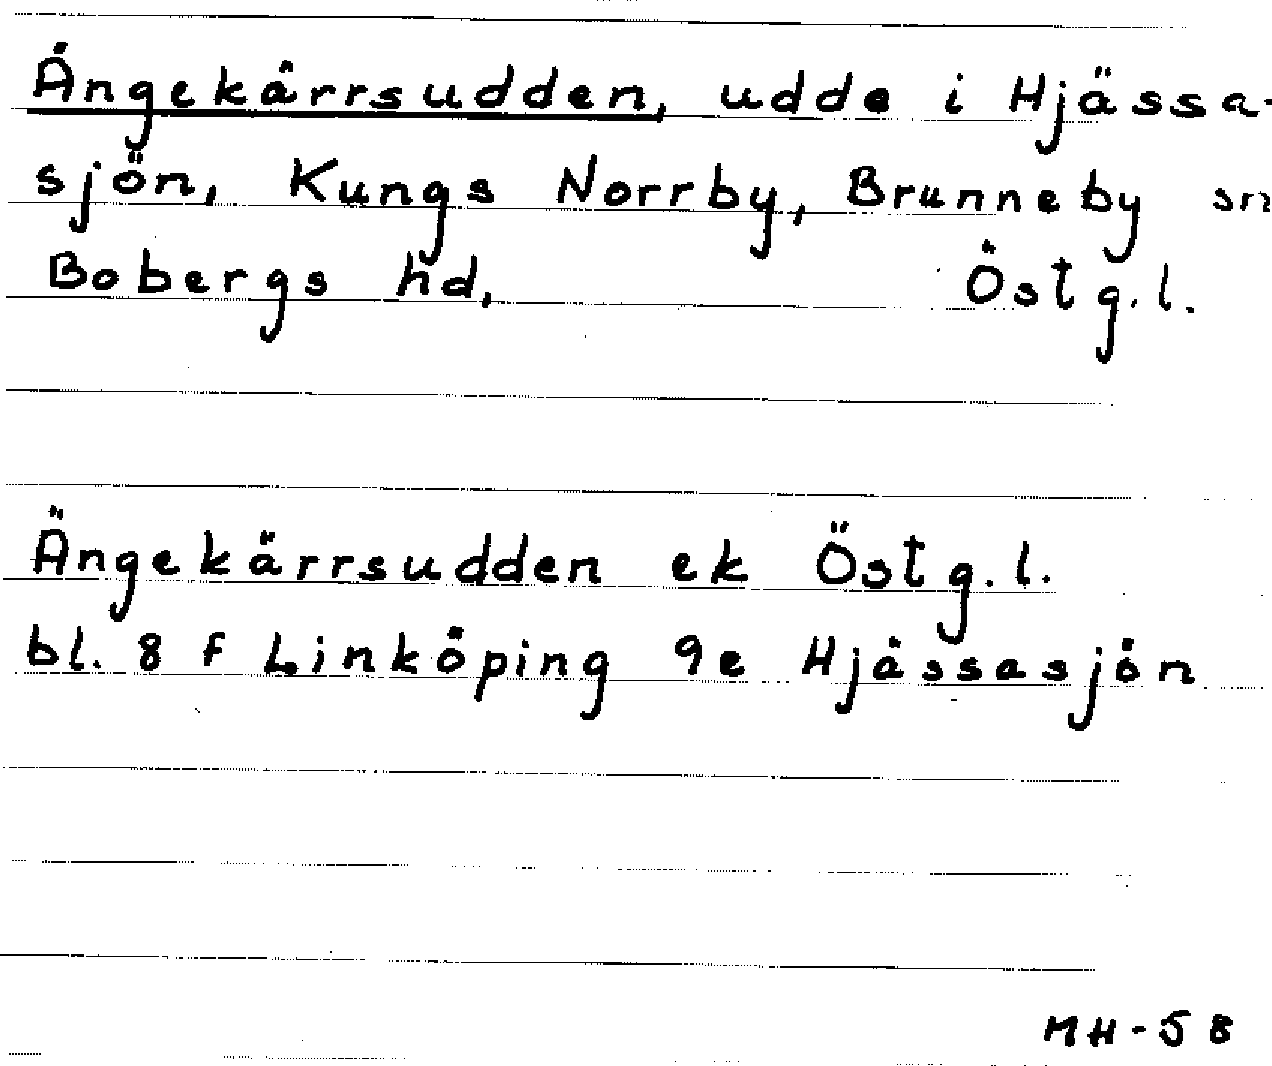 Ängekärrsudden, udde i Hjässa-
sjön, Kungs Norrby, Brunneby sn
Bobergs hd, Östg.l.
Ängekärrsudden ek Östg.l.
bl. 8 F Linköping 9e Hjässasjön
MH-58